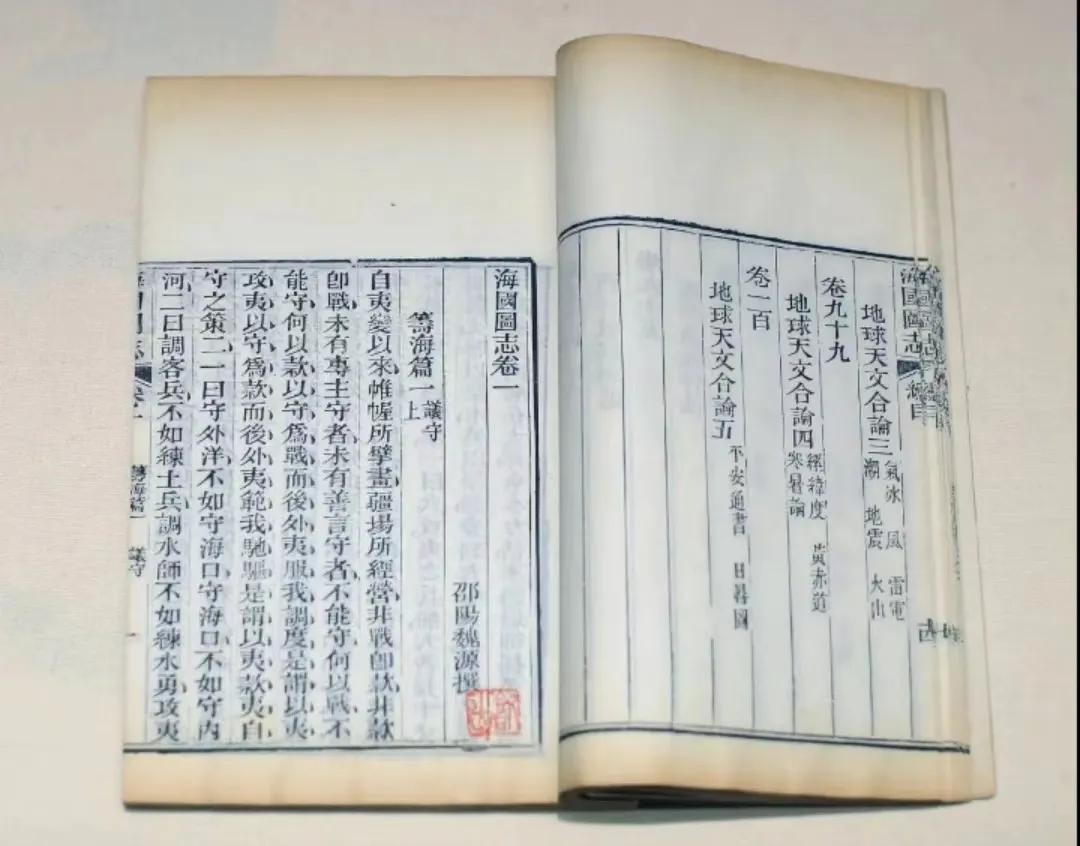 海國圖志
總目
地球天文合論三
氣冰 風 雷電
潮 地震 火山
卷九十九
地球天文合論四
經緯度 黃赤道
寒暑論
卷一百
地球天文合論五
平安通書 日晷圖
海國圖志卷一
邵陽魏源撰
籌海篇一
議守
上
自夷變以來帷幄所擘畫疆場所經營非戰卽款非款
卽戰未有專主守者未有善言守者不能守何以戰不
能守何以款以守爲戰而後外夷服我調度是謂以夷
攻夷以守爲款而後外夷範我馳驅是謂以夷款夷自
守之策二一曰守外洋不如守海口守海口不如守內
河二曰調客兵不如練土兵調水師不如練水勇攻夷
籌海篇一 議守
一